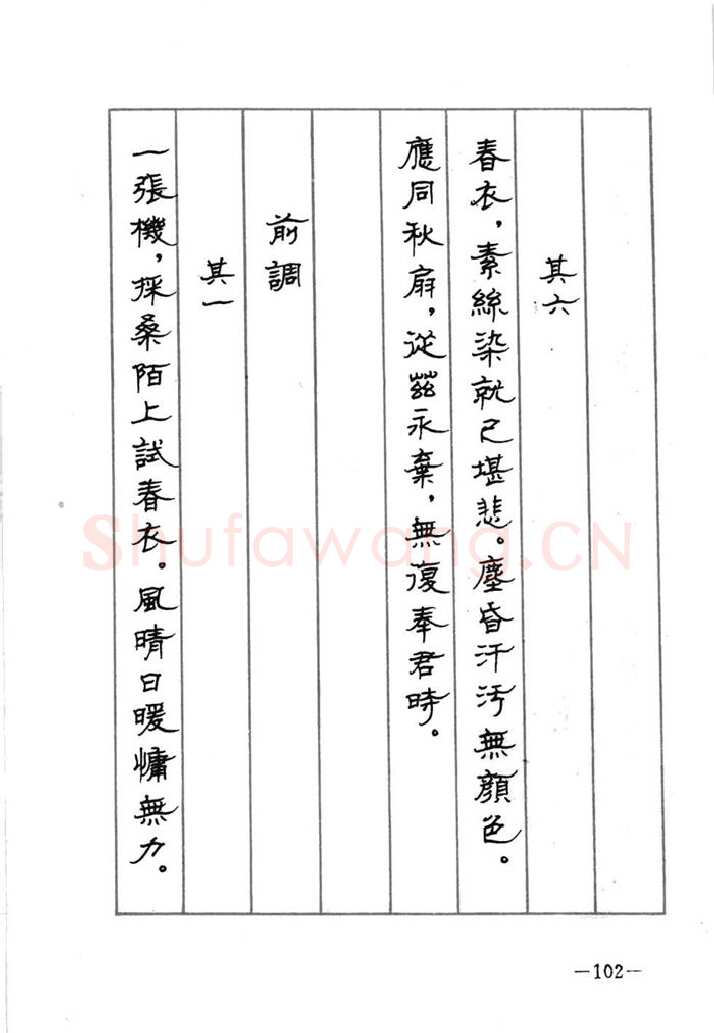 其六
春衣，素絲染就已堪悲。塵昏汗汚無顏色。
應同秋扇，從茲永棄，無復奉君時。
前調
其一
一張機，採桑陌上試春衣。風晴日暖慵無力。
Shufawang.CN
—102—